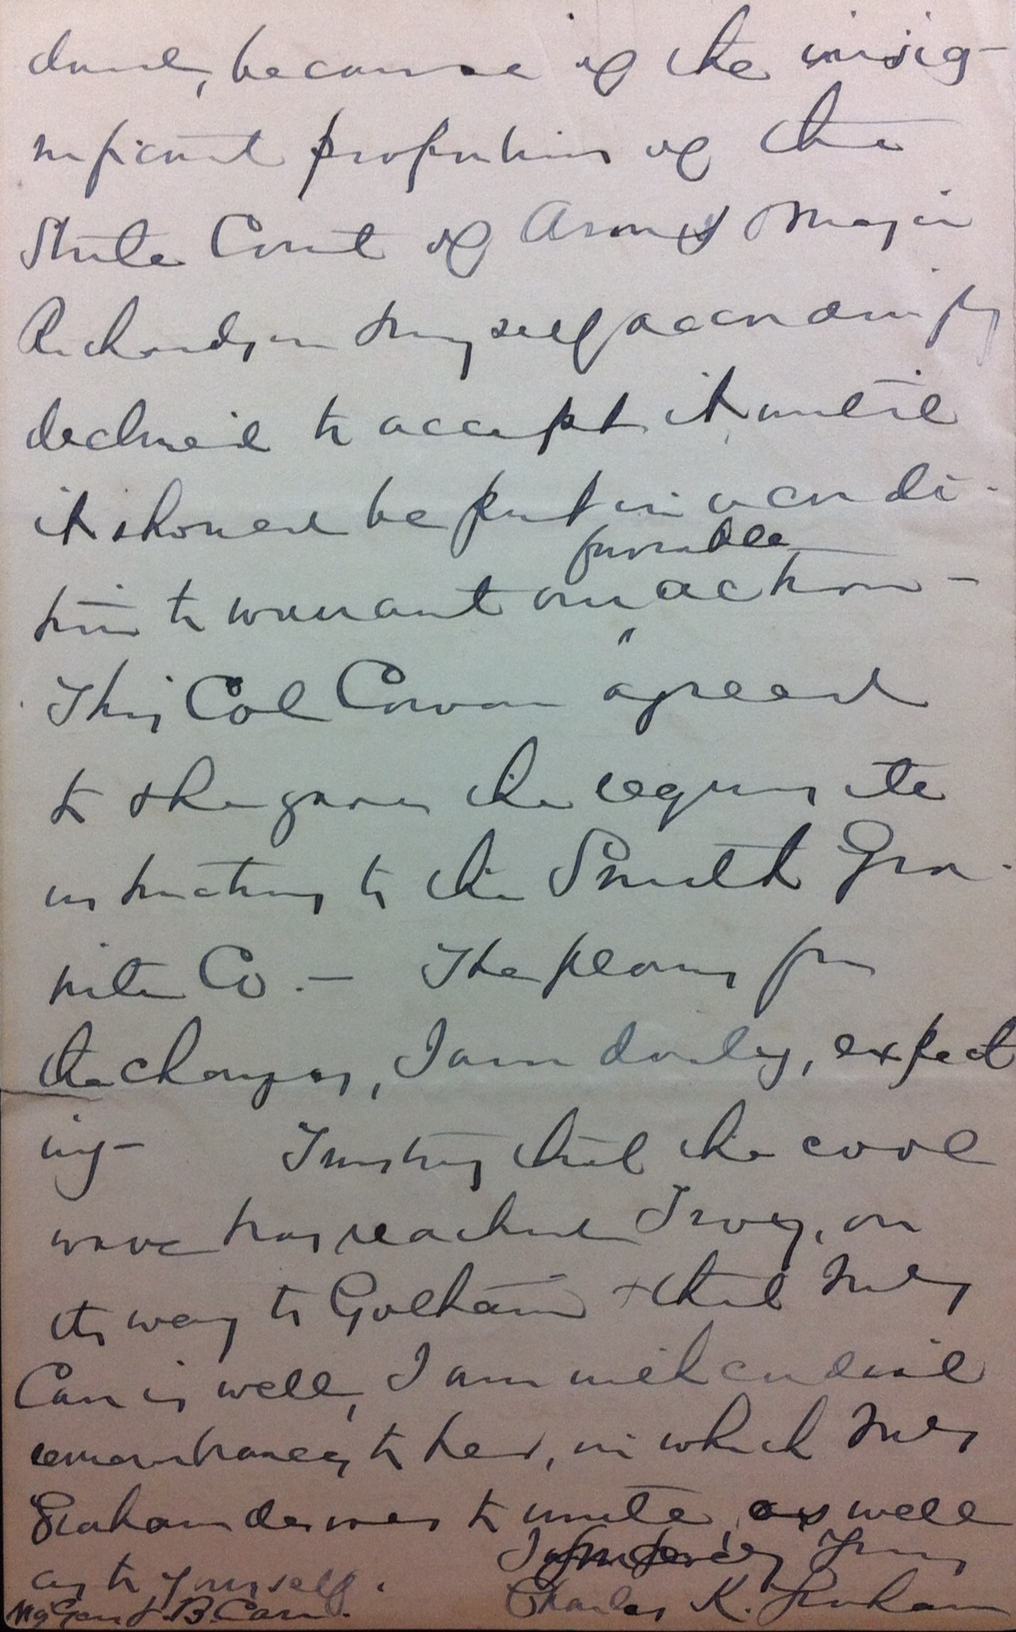 done, because of the insig-
nificant proportions of the
State Coat of Arms. Major
Richardson & myself accordingly
declined to accept it, until
it should be put in a condi-
favorable
tion to warrant our action -
This Col Cowan agreed
to & he gave the requisite
instructions to the Smith Gra-
nite Co. - The plans for
the changes, I am daily, expect
ing - Trusting that the cool
wave has reached Troy, on
its way to Gotham & that Mrs
Carr is well, I am with cordial
remembrances to her, in which Mrs
Graham desires to unite, as well
as to yourself.
Yours
Charles K. Graham
Mg Gen J. B. Carr.